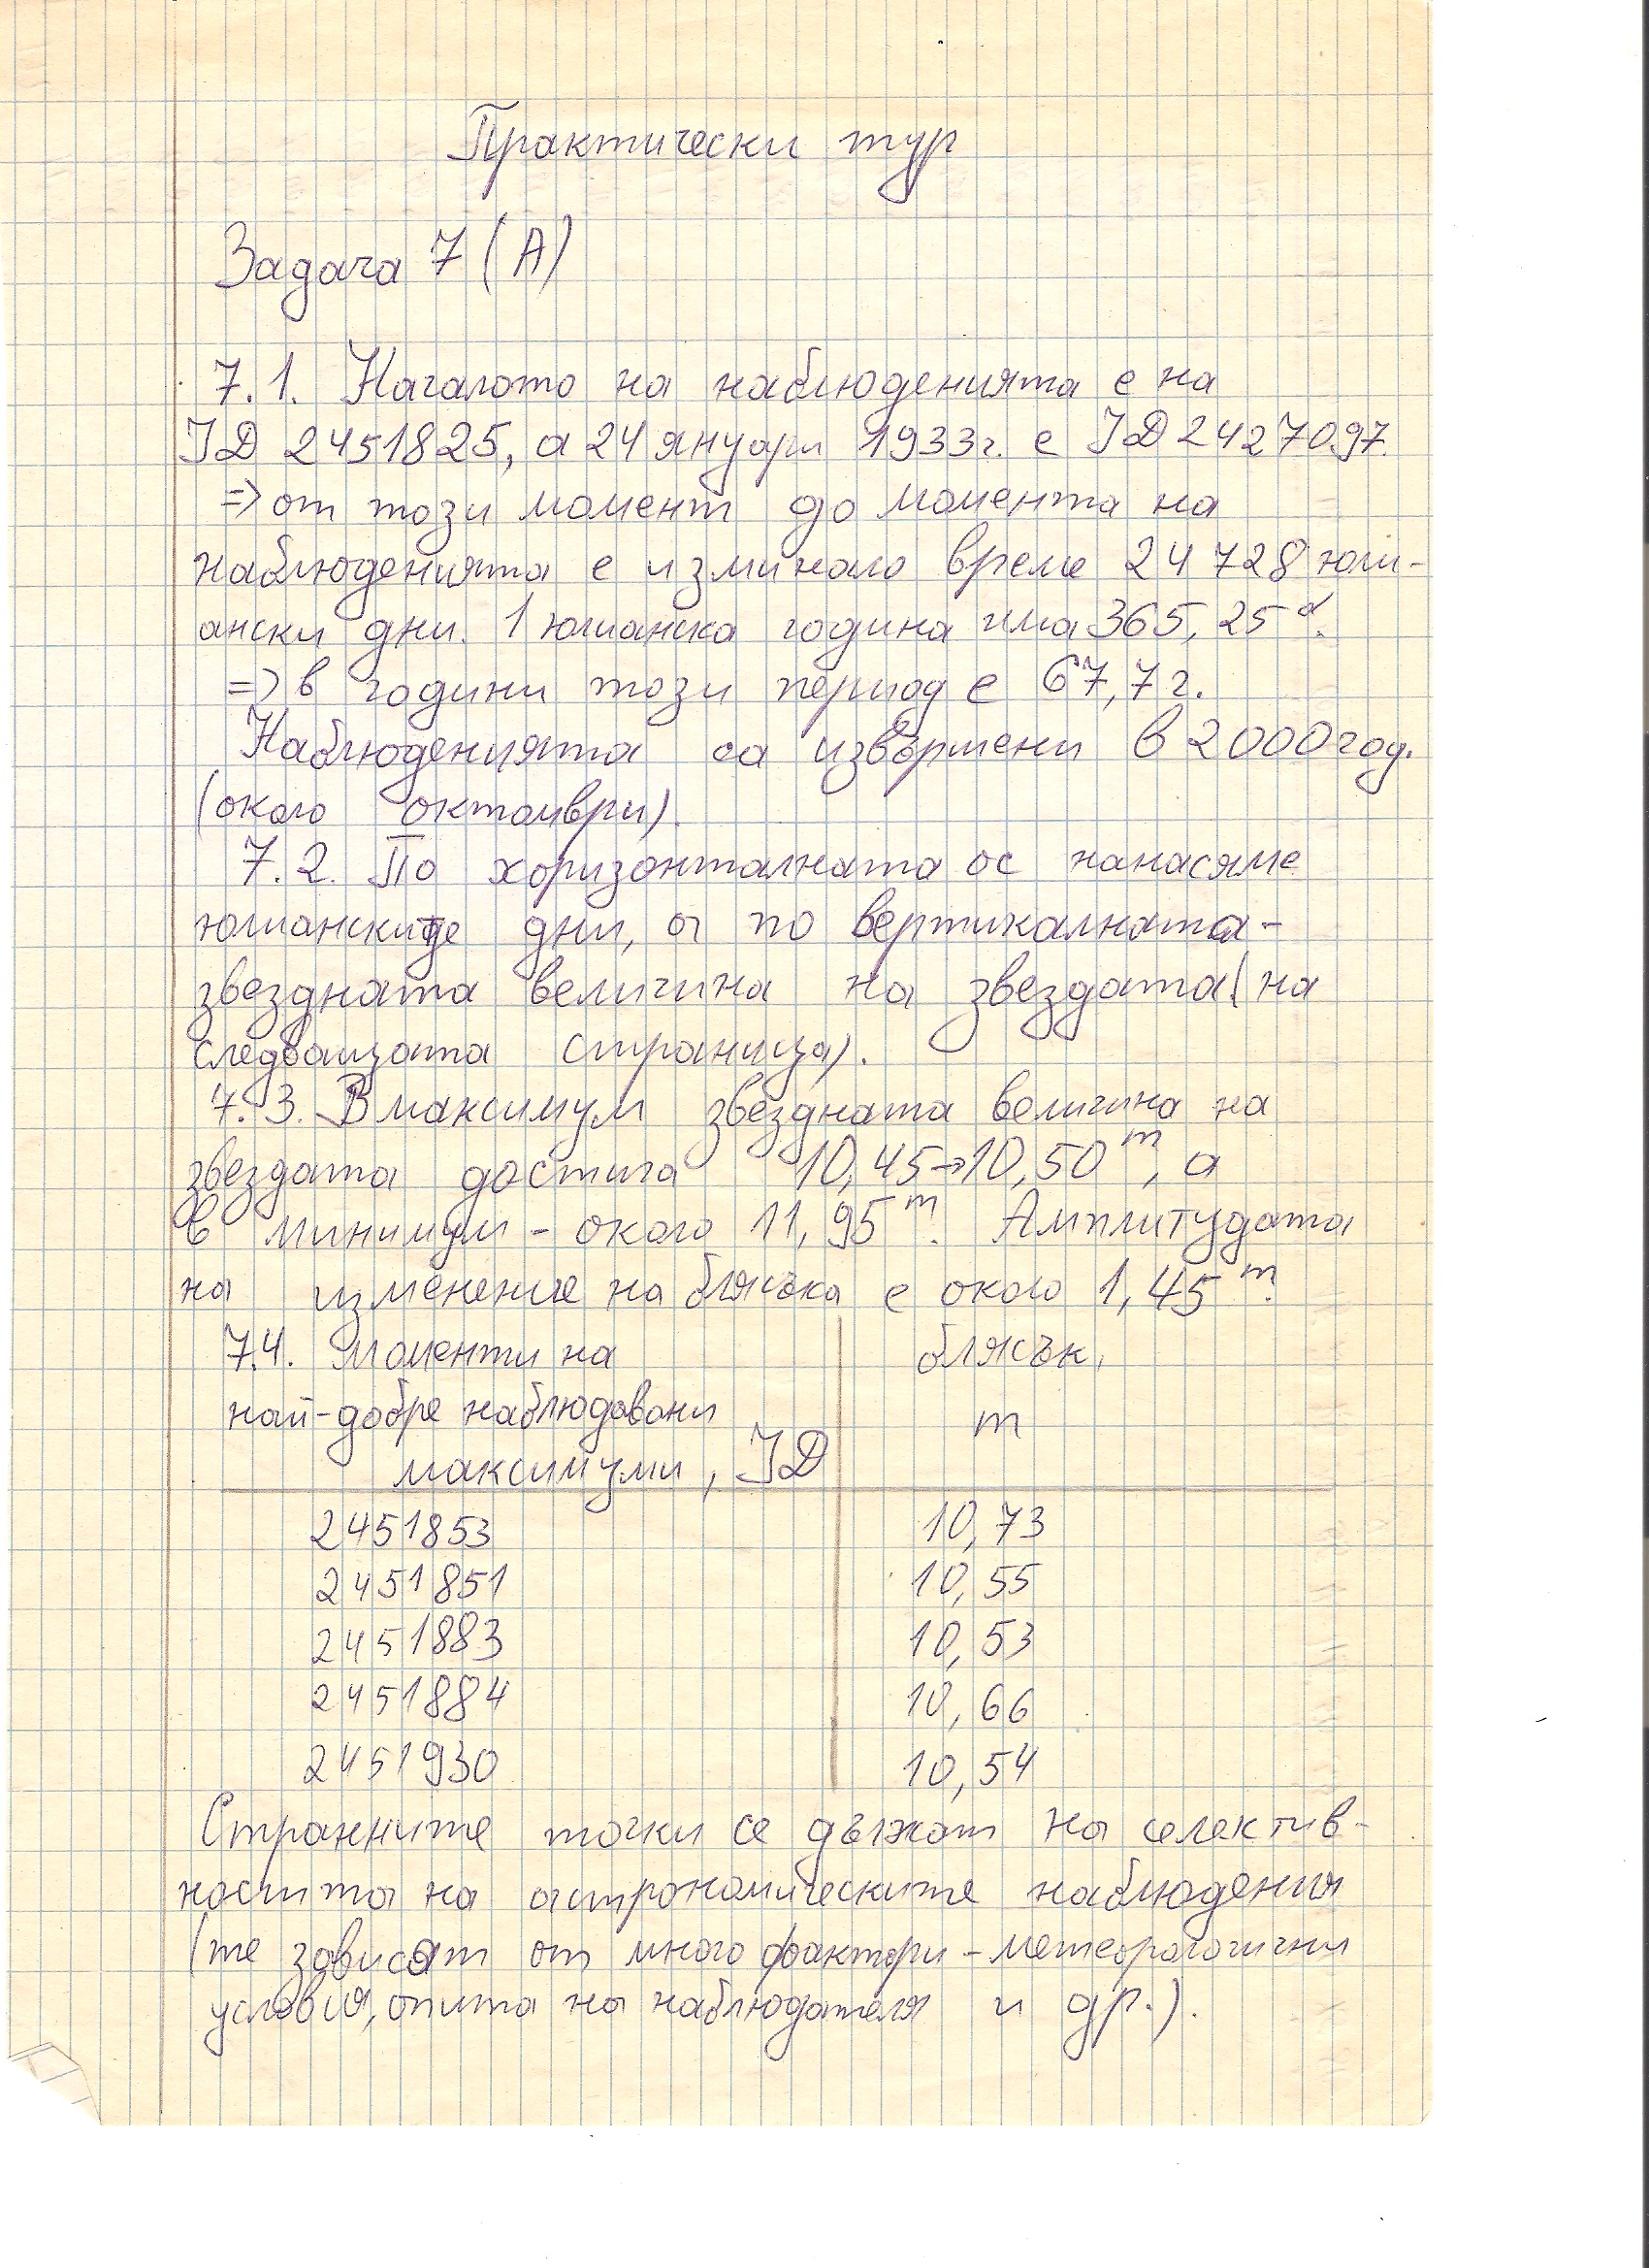 Практически тур
Задача 7 (А)
7.1. Началото на наблюденията е на
JD 2451825, а 24 януари 1933г. е JD 2427097.
=> от този момент до момента на
наблюденията е изминало време 24 728 юли-
ански дни. 1 юлианска година има 365,25 d.
=> в години този период е 67,7 г.
Наблюденията са извършени в 2000 год.
(около октомври).
7.2. По хоризонталната ос нанасяме
юлианските дни, а по вертикалната -
звездната величина на звездата (на
следващата страница).
7.3. В максимум звездната величина на
звездата достига 10,45→10,50 m, а
в минимум - около 11,95 m. Амплитудата
на изменение на блясъка е около 1,45 m.
7.4. Моменти на блясък,
най-добре наблюдавани m
максимуми, JD
2451853 10,73
2451851 10,55
2451883 10,53
2451884 10,66
2451930 10,54
Странните точки се дължат на селектив-
ността на астрономическите наблюдения
(те зависят от много фактори - метеорологични
условия, опита на наблюдателя и др.).